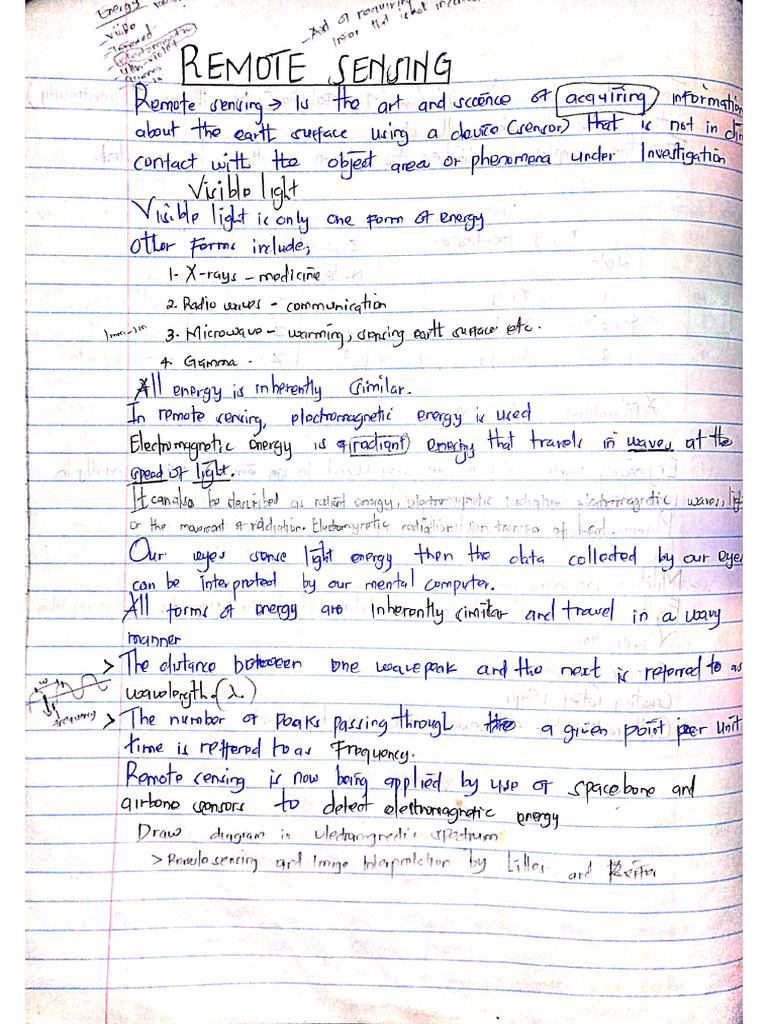 Energy
- Visible
- Infrared
- Electromagnetic
- Ultra-violet
- Gamma
- Art of requiring
infor that is not in
REMOTE SENSING
Remote sensing → Is the art and science of acquiring information
about the earth surface using a device (sensor) that is not in
contact with the object area or phenomena under Investigation
Visible light
Visible light is only one form of energy
Other Forms include;
1- X-rays - medicine
2. Radio waves - communication
1mm-1m 3. Microwave - warming, sensing earth surface etc.
4. Gamma.
All energy is inherently similar.
In remote sensing, electromagnetic energy is used
Electromagnetic energy is a radiant energy that travels in waves at the
speed of light.
It can also be described as radient energy, electromagnetic radiation electromagnetic waves, light
or the movement of radiation. Electromagnetic radiation can transfer of heat.
Our eyes sense light energy then the data collected by our eyes
can be interpreted by our mental computer.
All forms of energy are inherently similar and travel in a wavy
manner
> The distance between one wavepeak and the next is referred to as
wavelength. (λ)
frequency
> The number of peaks passing through a given point per unit
time is reffered to as Frequency.
Remote sensing is now being applied by use of spacebone and
airbone sensors to detect electromagnetic energy
Draw diagram in electromagnetic spectrum
> Remote sensing and Image Interpretation by Lilles and Keifer